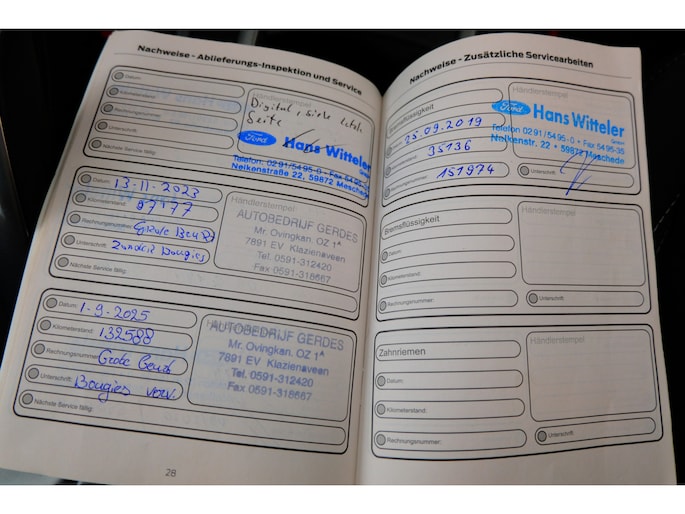 Nachweise - Ablieferungs-Inspektion und Service
Datum:
Kilometerstand:
Rechnungsnummer:
Unterschrift:
Nächste Service fällig:
Händlerstempel
Digital, siehe letzte
Seite
Ford Hans Witteler
GmbH
Telefon 02 91/54 95-0 - Fax 54 95-35
Nelkenstraße 22, 59872 Meschede
Datum: 13-11-2023
Kilometerstand: 97177
Rechnungsnummer: Grote Beurt
Unterschrift: Bougies
Nächste Service fällig:
Händlerstempel
AUTOBEDRIJF GERDES
Mr. Ovingkan. OZ 1A
7891 EV Klazienaveen
Tel. 0591-312420
Fax 0591-318667
Datum: 1-9-2025
Kilometerstand: 132588
Rechnungsnummer: Grote Beurt
Unterschrift: Bougies verv.
Nächste Service fällig:
AUTOBEDRIJF GERDES
Mr. Ovingkan. OZ 1A
7891 EV Klazienaveen
Tel. 0591-312420
Fax 0591-318667
28
Nachweise - Zusätzliche Servicearbeiten
Bremsflüssigkeit
25.09.2019
35136
Rechnungsnummer: 151974
Händlerstempel
Ford Hans Witteler
GmbH
Telefon 02 91/54 95-0 - Fax 54 95-35
Nelkenstr. 22 · 59872 Meschede
Unterschrift:
Bremsflüssigkeit
Datum:
Kilometerstand:
Rechnungsnummer:
Händlerstempel
Unterschrift:
Zahnriemen
Datum:
Kilometerstand:
Rechnungsnummer:
Händlerstempel
Unterschrift: